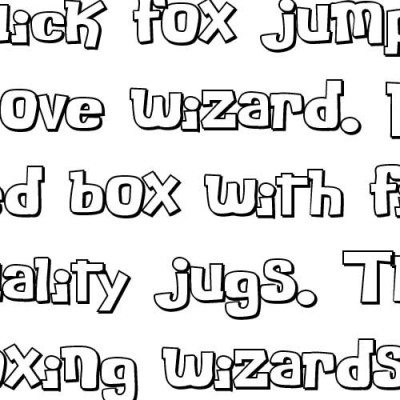 uick fox jump
ove wizard.
ed box with f
uality jugs. Th
oxing wizards